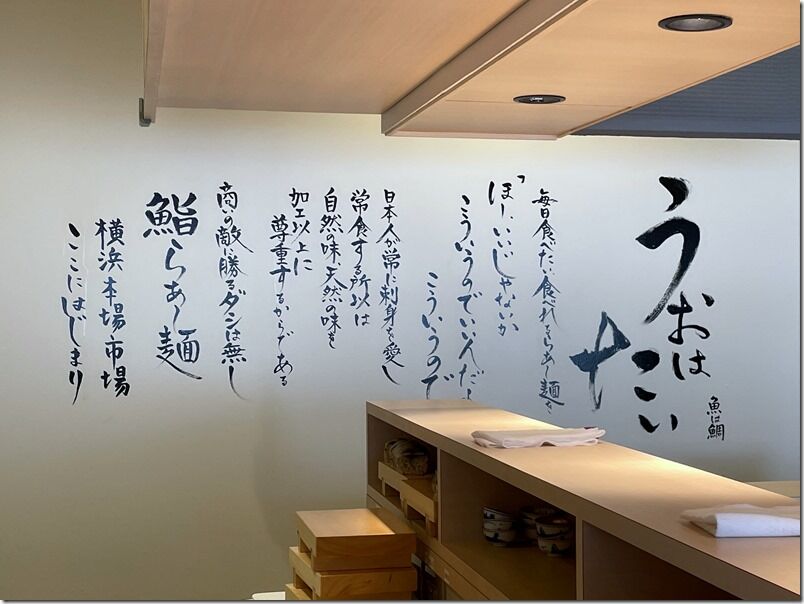 うおは
たい
魚は鯛
毎日食べたい食べれるらあー麺を
「ほーいいじゃないか
こういうのでいいんだよ
こういうので
日本人が常に刺身を愛し
常食する所以は
自然の味、天然の味を
加工以上に
尊重するからである
商いの敵に勝るダシは無し
鮨らあー麺
横浜本場市場
ここにはじまり